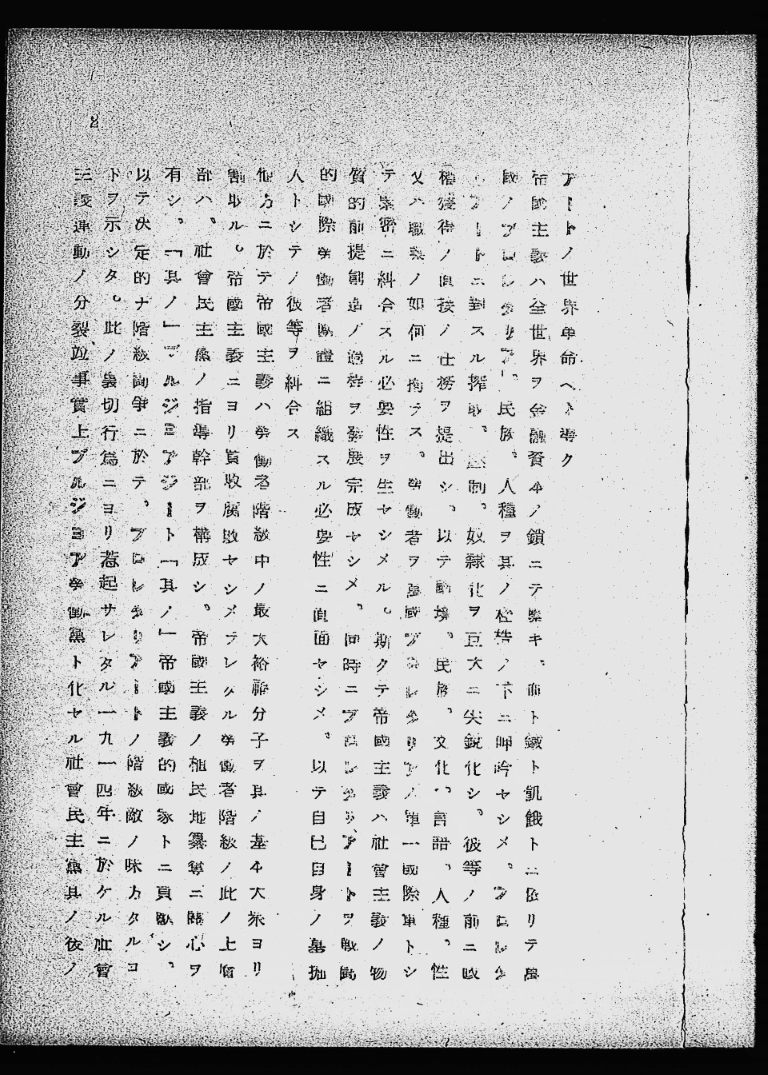 アートノ世界革命ヘト導ク
帝國主義ハ全世界ヲ金融資本ノ鎖ニテ繋キ、血ト鐵ト飢餓トニ依リテ萬
國ノプロレタリア、民族、人種ヲ其ノ桎梏ノ下ニ呻吟セシメ、プロレタ
リアートニ對スル搾取、壓制、奴隷化ヲ巨大ニ尖鋭化シ、彼等ノ前ニ政
權獲得ノ直接ノ仕務ヲ提出シ、以テ職場、民族、文化、言語、人種、性
又ハ職業ノ如何ニ拘ラス、勞働者ヲ萬國プロレタリアノ單一國際軍トシ
テ緊密ニ糾合スル必要性ヲ生セシメル。斯クテ帝國主義ハ社會主義ノ物
質的前提創造ノ過程ヲ發展完成セシメ、同時ニプロレタリアートヲ戰鬪
的國際勞働者團體ニ組織スル必要性ニ直面セシメ、以テ自己自身ノ墓掘
人トシテノ彼等ヲ糾合ス
他方ニ於テ帝國主義ハ勞働者階級中ノ最大裕福分子ヲ其ノ基本大衆ヨリ
割取ル。帝國主義ニヨリ買收腐敗セシメラレタル勞働者階級ノ此ノ上層
部ハ、社會民主黨ノ指導幹部ヲ構成シ、帝國主義ノ植民地纂奪ニ關心ヲ
有シ、「其ノ」ブルジヨアジート「其ノ」帝國主義的國家トニ貢獻シ、
以テ決定的ナ階級鬪爭ニ於テ、プロレタリアートノ階級敵ノ味方タルコ
トヲ示シタ。此ノ裏切行爲ニヨリ惹起サレタル一九一四年ニ於ケル社會
主義運動ノ分裂竝事實上ブルジヨア勞働黨ト化セル社會民主黨其ノ後ノ